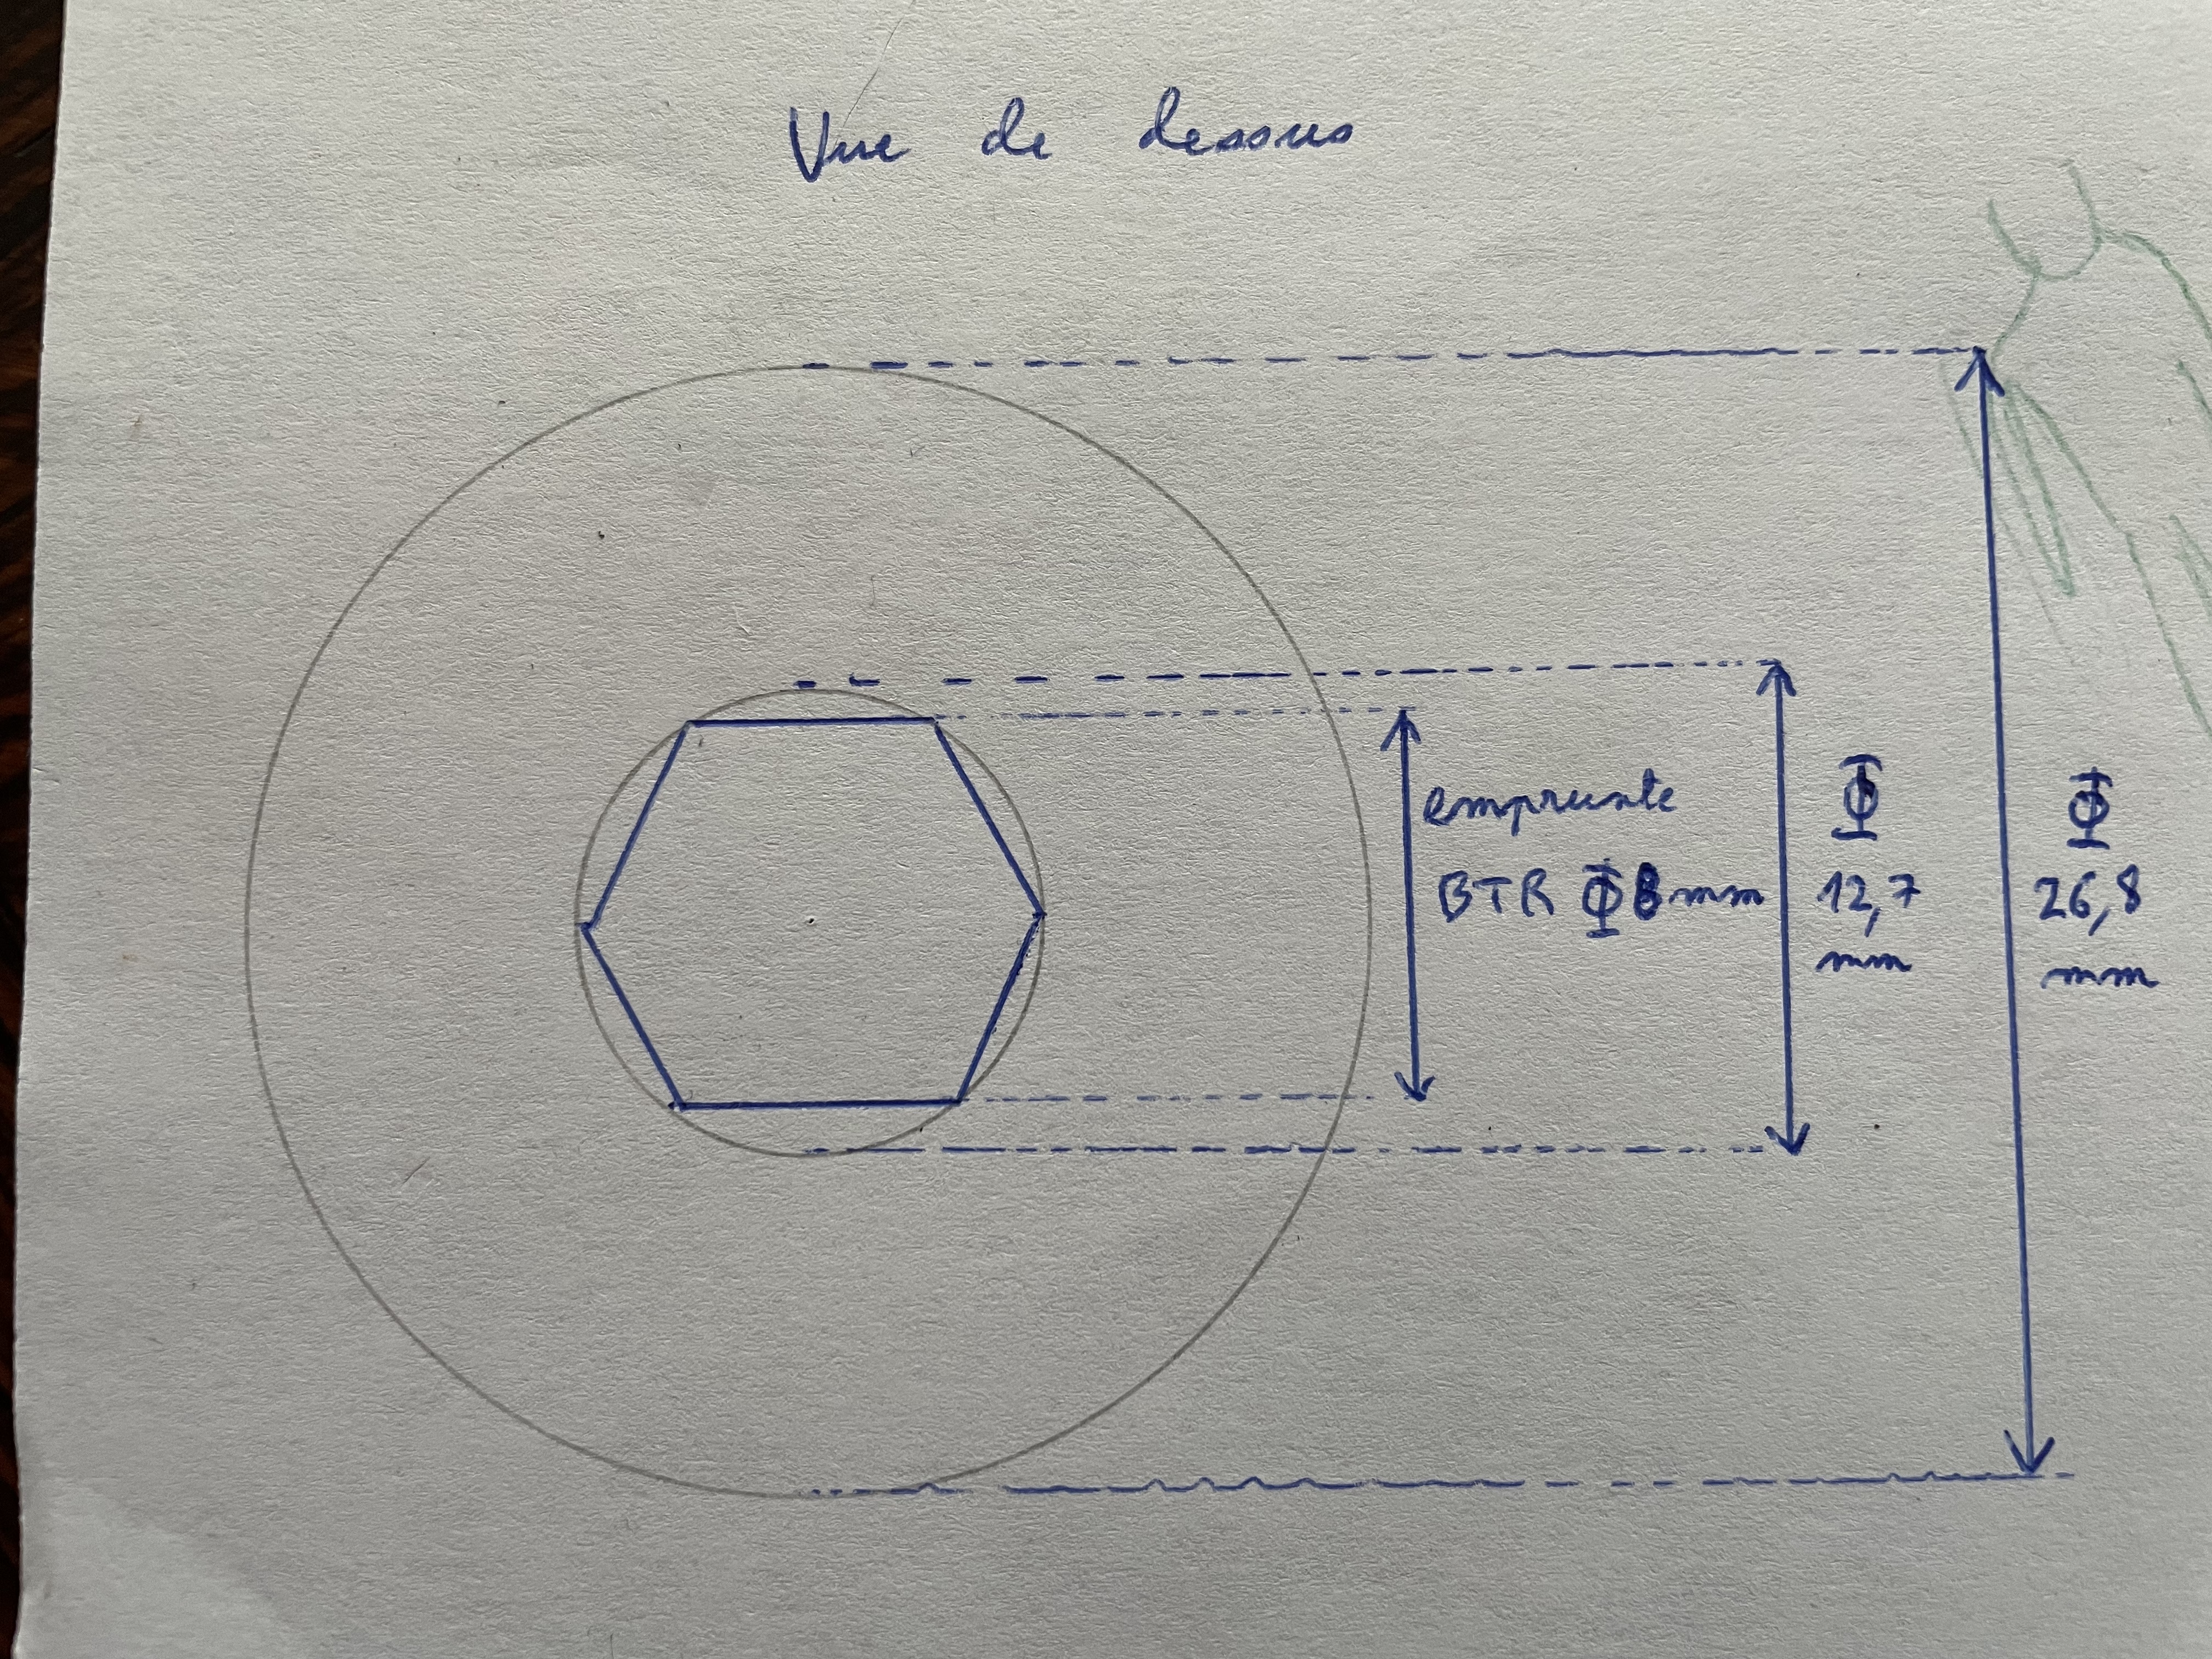 Vue de dessus
emprunte
BTR Φ 8 mm
Φ
12,7
mm
Φ
26,8
mm